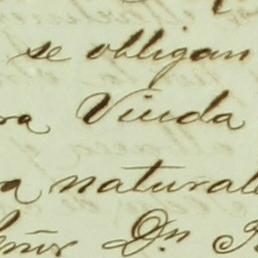 se obligan
ra Viuda
a natural
Señor Dn